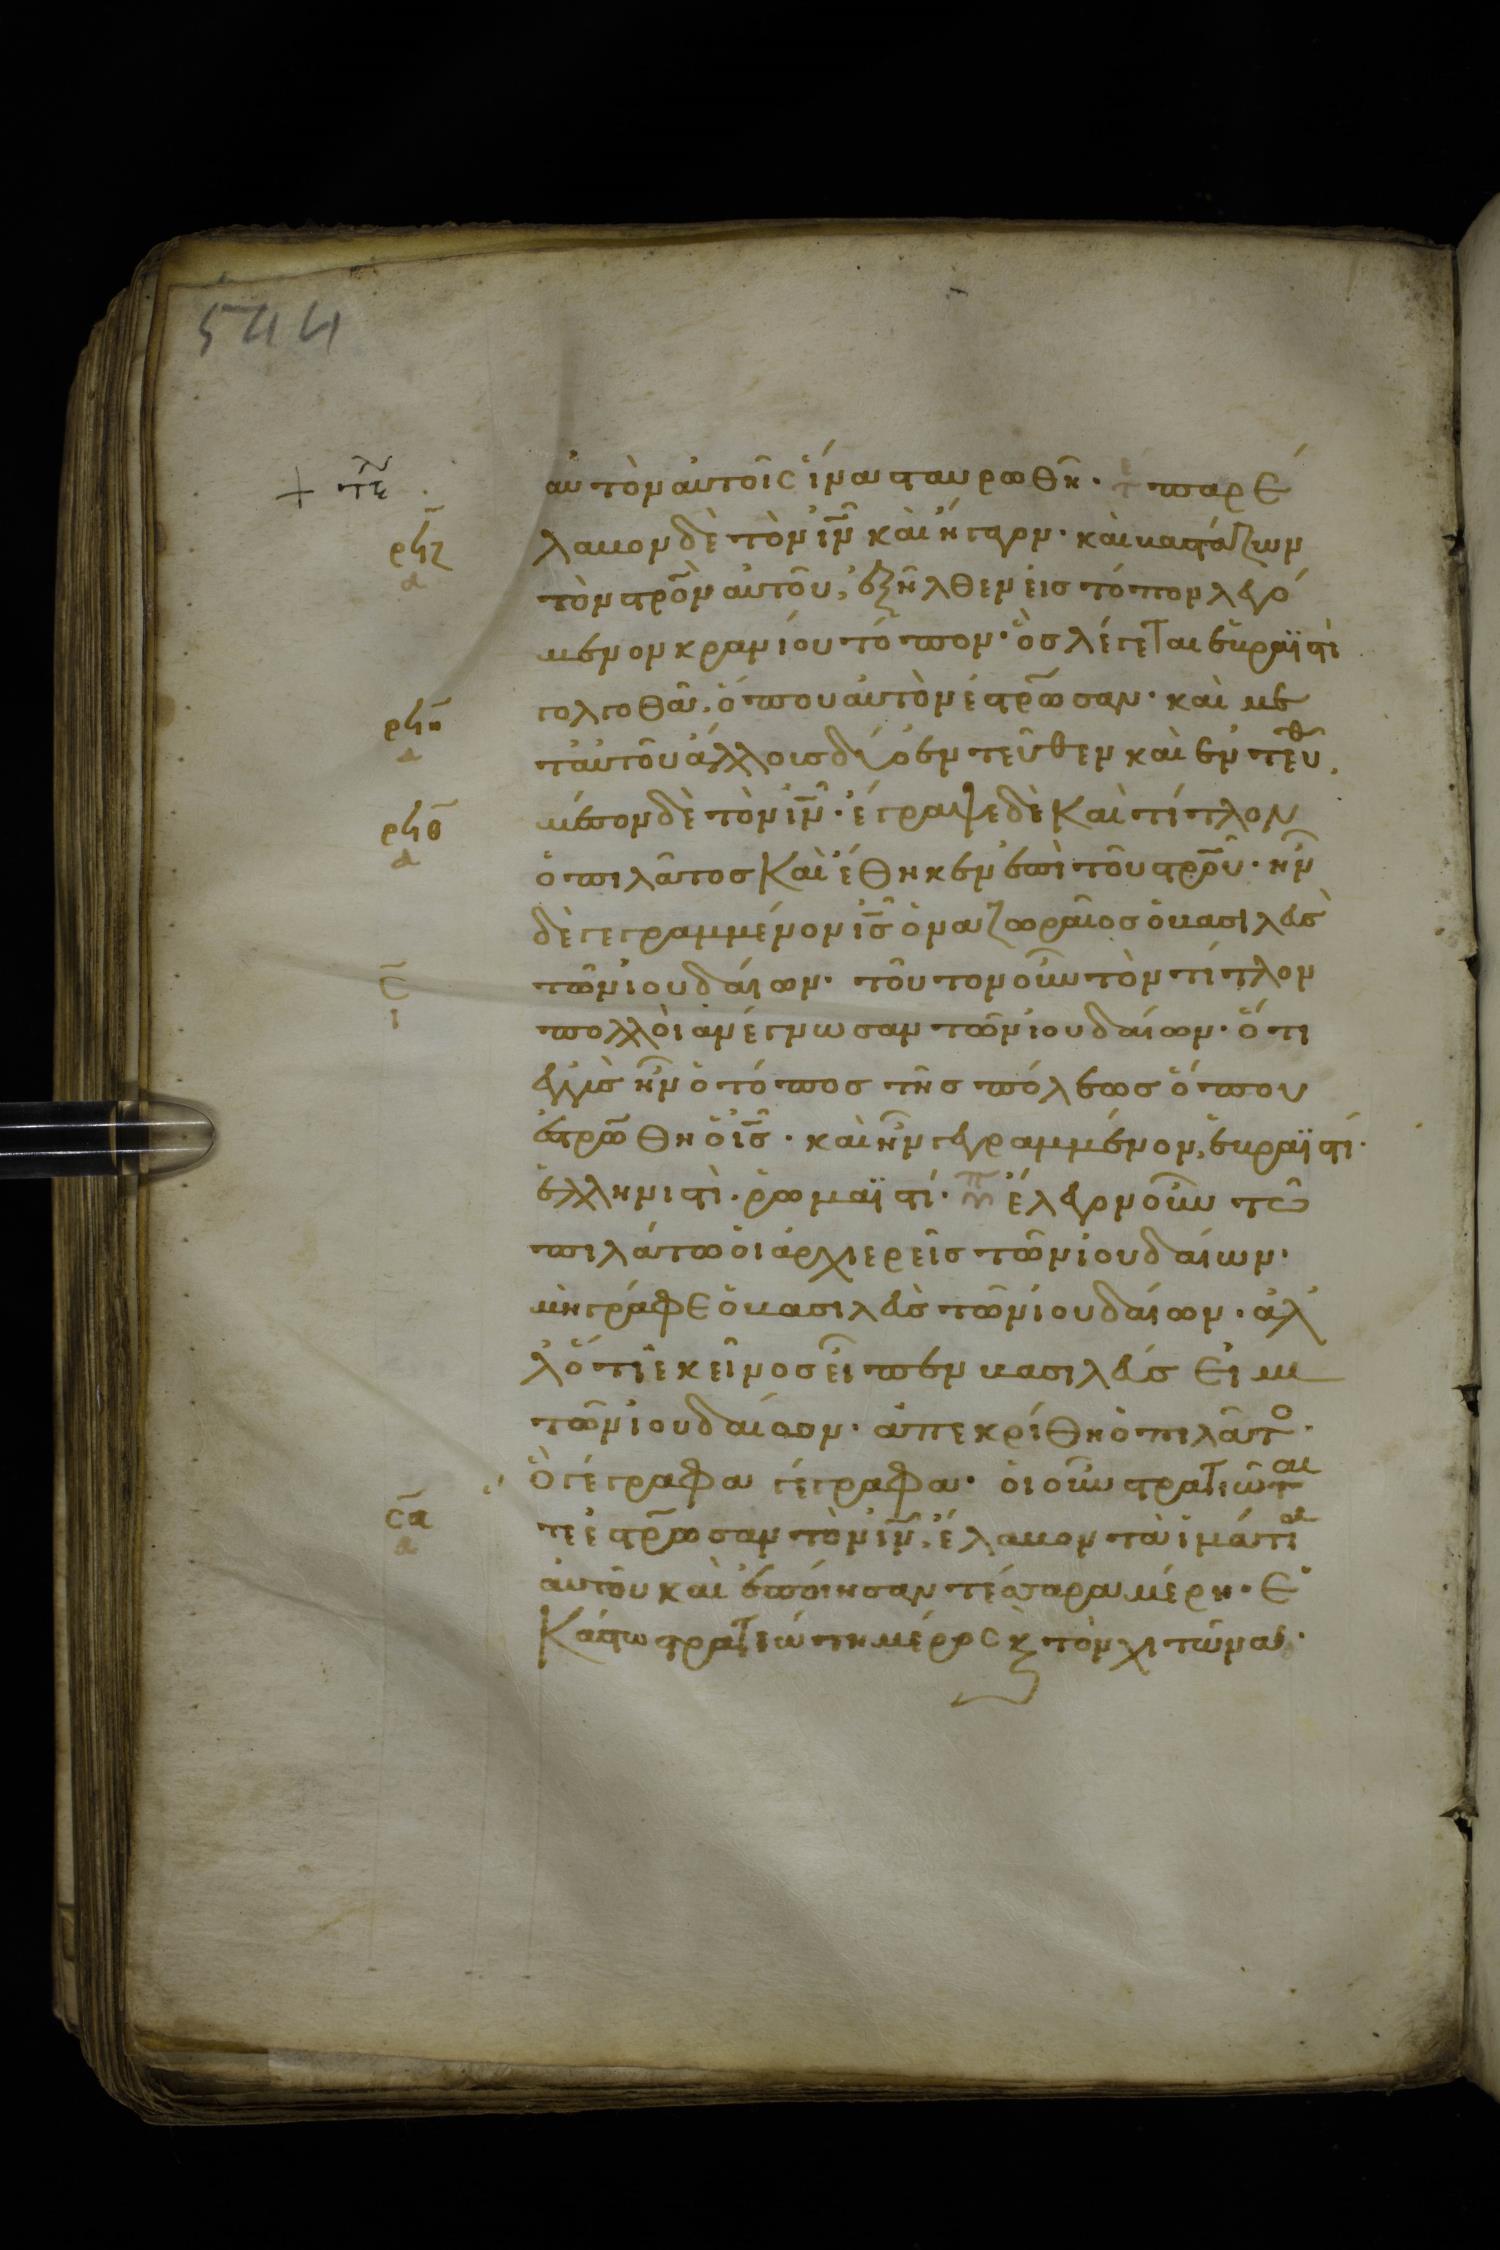 544
+ τε̃λ
αὐτὸν αὐτοῖς ἵνα σταυρωθῆ· παρέ
ρϟζ α
λαβον δὲ τὸν ἰ̅ν̅ καὶ ἤγαγον· καὶ βαστάζων
τὸν στρο̅ν αὐτοῦ, ἐξῆλθεν εἰς τόπον λεγό
μενον κρανίου τόπον· ὃς λέγεται ἑβραϊστὶ
ρϟη α
γολγοθᾶ, ὅπου αὐτὸν ἐστρω̅σαν· καὶ με
τ' αὐτοῦ ἄλλους δύο ἐντεῦθεν καὶ ἐντεῦθ,
ρϟθ α
μέσον δὲ τὸν ἰ̅ν̅· ἔγραψε δὲ καὶ τίτλον
ὁ πιλᾶτος καὶ ἔθηκεν ἐπὶ τοῦ στρο̅υ· ἦν
δὲ γεγραμμένον ἰ̅ς̅ ὁ ναζωραῖος ὁ βασιλεὺς
σ̅ ι
τῶν ἰουδαίων· τοῦτον οὖν τὸν τίτλον
πολλοὶ ἀνέγνωσαν τῶν ἰουδαίων· ὅτι
ἐγγὺς ἦν ὁ τόπος τῆς πόλεως ὅπου
ἐστρω̅θη ὁ ἰ̅ς̅· καὶ ἦν γεγραμμένον, ἑβραϊστί·
ἑλληνιστὶ· ῥωμαϊστί· ἔλεγον οὖν τῶ
πιλάτω οἱ ἀρχιερεῖς τῶν ἰουδαίων·
μὴ γράφε ὁ βασιλεὺς τῶν ἰουδαίων· ἀλ
λ' ὅτι ἐκεῖνος εἶπεν βασιλεύς εἰμι
τῶν ἰουδαίων· ἀπεκρίθη ὁ πιλᾶτο·
ὃ γέγραφα γέγραφα· οἱ οὖν στρατιῶται
σ̅α α
τε ἐστρω̅σαν τὸν ἰ̅ν̅, ἔλαβον τὰ ἱμάτια
αὐτοῦ καὶ ἐποίησαν τέσσαρα μέρη· ἑ
κάστω στρατιώτη μέρος κ̀ τὸν χιτῶνα·